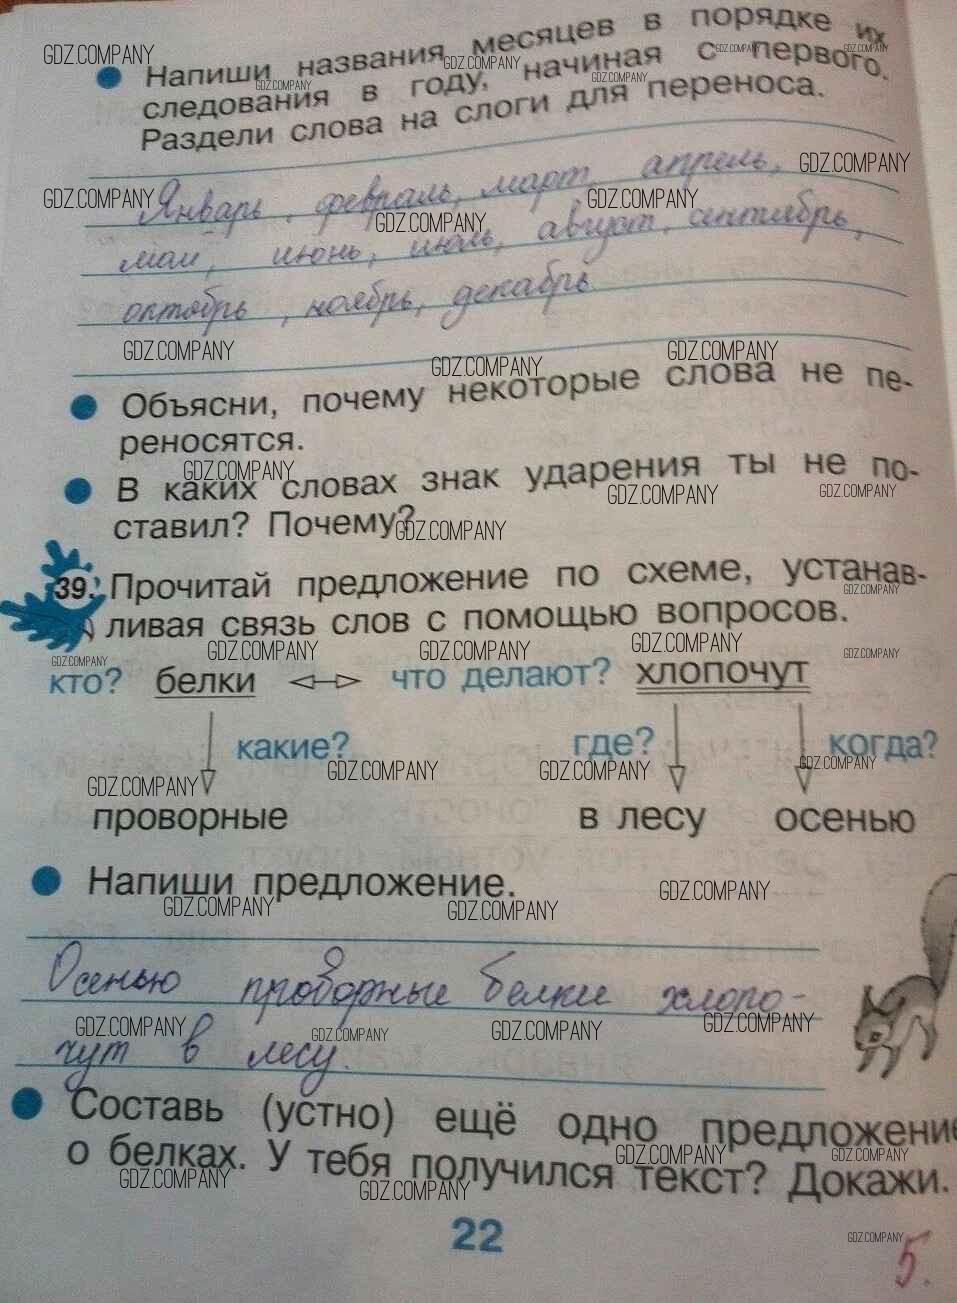 Напиши названия месяцев в порядке их
следования в году, начиная с первого.
Раздели слова на слоги для переноса.
Январь, февраль, март, апрель,
май, июнь, июль, август, сентябрь,
октябрь, ноябрь, декабрь
Объясни, почему некоторые слова не пе-
реносятся.
В каких словах знак ударения ты не по-
ставил? Почему?
39. Прочитай предложение по схеме, устанав-
ливая связь слов с помощью вопросов.
кто? белки что делают? хлопочут
какие? где? когда?
проворные в лесу осенью
Напиши предложение.
Осенью проворные белки хлопо-
чут в лесу.
Составь (устно) ещё одно предложение
о белках. У тебя получился текст? Докажи.
22
5.
GDZ.COMPANY